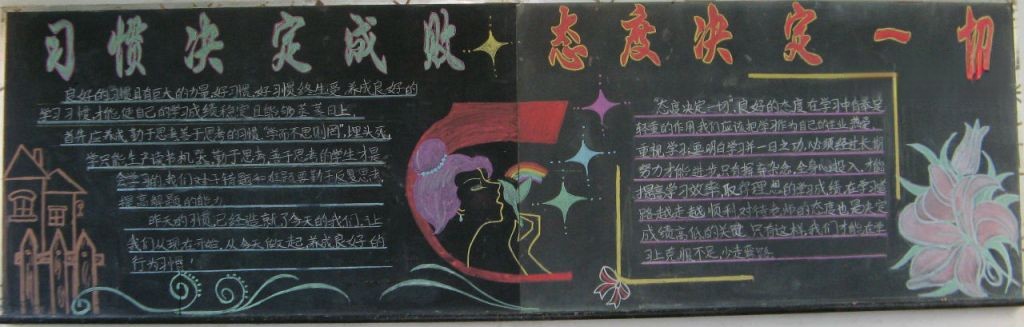 习惯决定成败
良好的习惯具有巨大的力量,好习惯,好习惯终生受,养成良好的
学习习惯才能使自己的学习成绩稳定且能够蒸蒸日上.
首先应养成勤于思考善于思考的习惯,"学而不思则罔",埋头
学只能生产读书机器,勤于思考善于思考的学生才是
会学习的,我们对于错题和难题要勤于反复思考
提高解题的能力.
昨天的习惯已经造就了今天的我们,让
我们从现在开始,从今天做起养成良好的
行为习惯!
态度决定一切
"态度决定一切",良好的态度在学习中有着举足
轻重的作用,我们应该把学习作为自己的主业,
重视学习,要明白学习并一日之功,必须经过长期
努力才能进步,只有摒弃杂念,全身心投入,才能
提高学习效率,取得理想的学习成绩,在学习道
路越走越顺利,对待老师的态度也是决定
成绩高低的关键,只有这样,我们才能在学
习上克服不足,少走弯路.